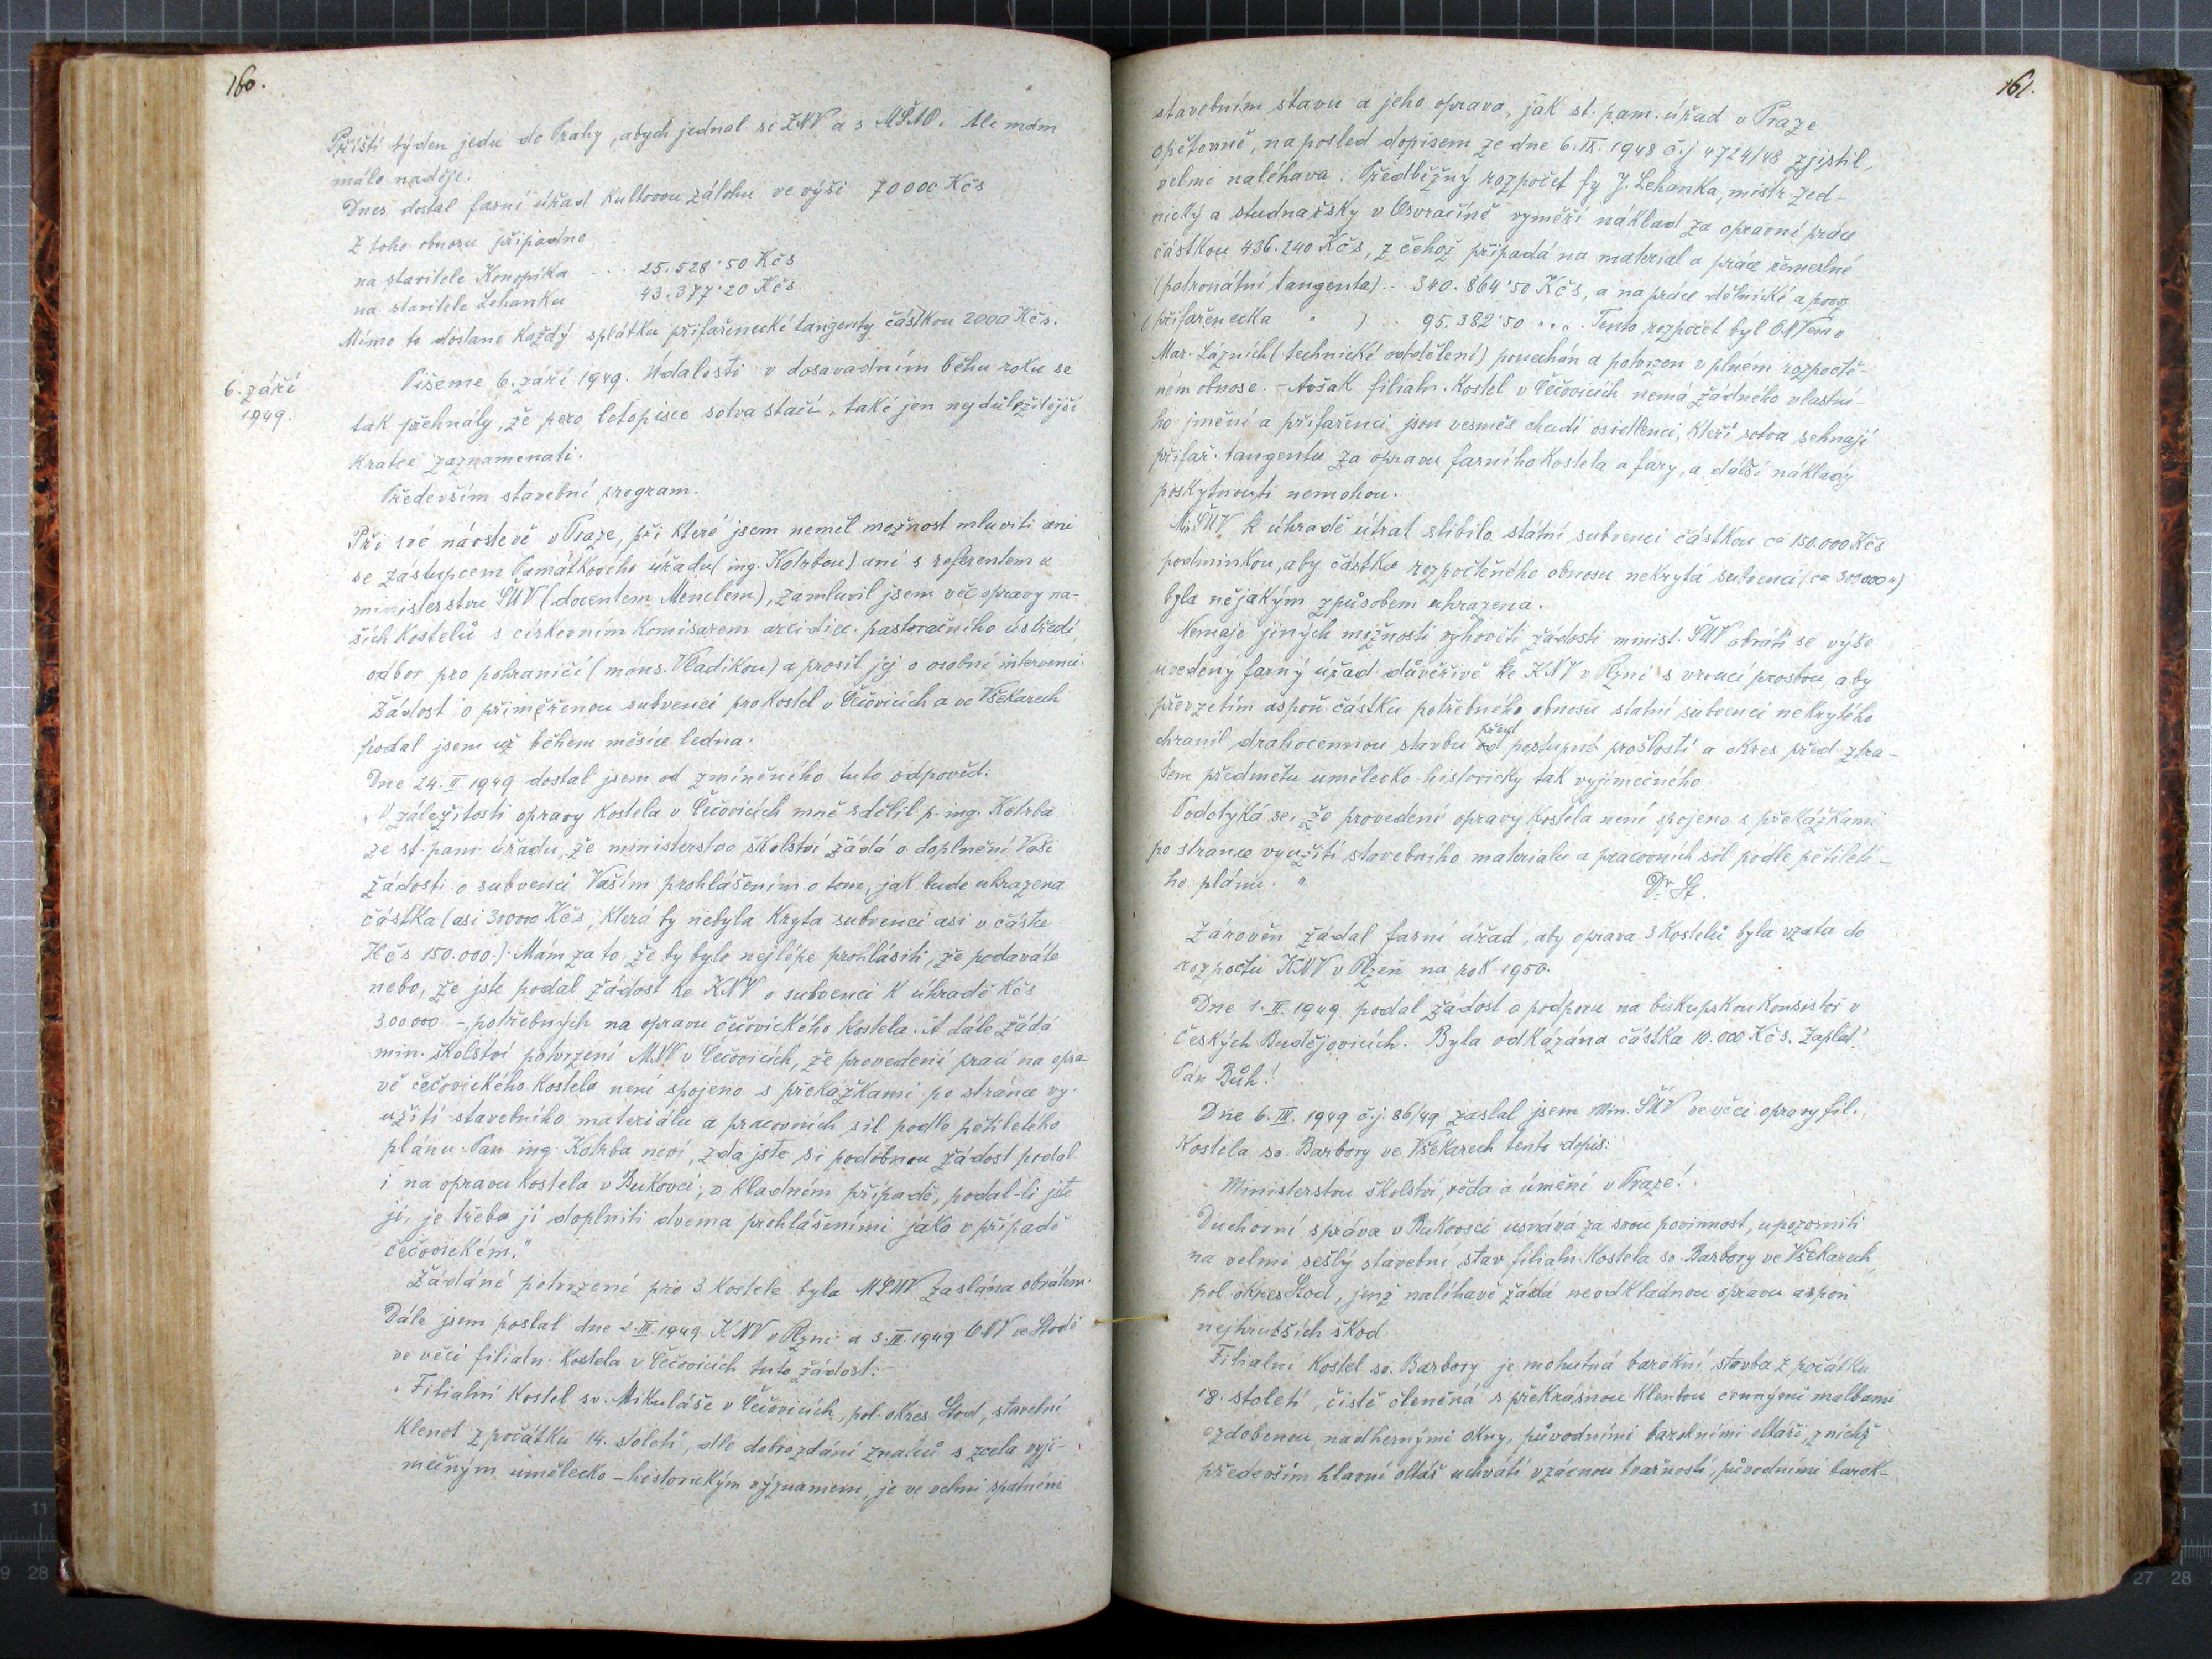 160.
Příští týden jedu do Prahy, abych jednal se ZNV a s MŠAO. Ale mám
málo naděje.
Dnes dostal farní úřad kultovou zálohu ve výši 70000 Kčs
Z toho obnosu připadne
na stavitele Konopíka ... 25.528'50 Kčs
na stavitele Lehanku 43.377'20 Kčs
Mimo to dostane každý splátku přifařenecké tangenty částkou 2000 Kčs.
6. září
1949.
Píšeme 6. září 1949. Události v dosavadním běhu roku se
tak přehnaly, že pero letopisce sotva stačí, také jen nejdůležitější
kratce zaznamenati.
Především stavební program.
Při své návštevě v Praze, při které jsem neměl možnost mluviti ani
se zástupcem Památkového úřadu (ing. Kotrbou) ani s referentem u
ministerstvu ŠUV (docentem Menclem), zamluvil jsem věc opravy na-
šich kostelů s církevním komisarem arcidiec. pastoračního ústředí
odbor pro pohraničí (mons. Vladíkou) a prosil jej o osobní intervenci.
Žádost o přiměřenou subvenci pro kostel v Čečovicích a ve Všekarech
podal jsem už během měsíce ledna.
Dne 24. II 1949 dostal jsem od zmíněného tuto odpověd:
„V záležitosti opravy kostela v Čečovicích mně sdělil p. ing. Kotrba
ze st. pam. úřadu, že ministerstvo školství žádá o doplnění Vaší
žádosti o subvenci Vaším prohlášením o tom, jak bude uhrazena
částka (asi 300000 Kčs, která by nebyla kryta subvencí asi v částce
Kčs 150.000.) Mám za to, že by bylo nejlépe prohlásiti, že podaváte
nebo, že jste podal žádost ke KNV o subvenci k úhradě Kčs
300 000 - potřebných na opravu čečovického kostela. A dále žádá
min. školství potvrzení MNV v Čečovicích, že provedení prací na opra-
vě čečovického kostela není spojeno s překážkami po stránce vy-
užití stavebního materiálu a pracovních sil podle pětiletého
plánu. Pan ing Kotrba neví, zda jste si podobnou žádost podal
i na opravu kostela v Bukovci; v kladném případě, podal-li jste
ji, je třeba ji doplniti dvema prohlášeními jako v případě
čečovickém."
Žádáné potvrzení pro 3 kostele byla MŠUV zaslána obratem.
Dále jsem poslal dne 2. III. 1949 KNV v Plzni a 3. III. 1949 ONV ve Stodě
ve věci filialn. kostela v Čečovicích tuto žádost:
„Filialní kostel sv. Mikuláše v Čečovicích, pol. okres Stod, stavební
klenot z počátku 14. století, dle dobrozdání znalců s zcela vyji-
mečným umělecko-historickým významem, je ve velmi spatném
161.
stavebním stavu a jeho oprava, jak st. pam. úřad v Praze
opětovně, naposled dopisem ze dne 6. IX. 1948 č.j 4724/48 zjistil,
velmi naléhava. Předběžný rozpočet fy J. Lehanka, mistr zed-
nický a studnařsky v Osvračíně vyměří náklad za opravní práce
částkou 436.240 Kčs, z čehož připadá na material a práce řemeslné
(patronátní tangenta) .. 340.864'50 Kčs, a na práce dělnické a povoz
(přifařenecka " ) .. 95.382'50 „ „ . Tento rozpočet byl ONVem v
Mar. Lázních (technické oddělení) ponechán a potvrzen v plném rozpočtě-
ném obnose. - Avšak filialn. kostel v Čečovicích nemá žádného vlastní-
ho jmění a přifařenci jsou vesměs chudí osidlenci, kteří sotva sehnají
přifař. tangentu za opravu farního kostela a fary, a další náklady
poskytnouti nemohou.
Min ŠUV k úhradě útrat slíbilo státní subvenci částkou ca 150.000 Kčs
podmínkou, aby částka rozpočteného obnosu nekrytá subvencí (ca 300000 „)
byla nějakým způsobem uhrazena.
Nemaje jiných možnosti vyhověti žádosti minist. ŠUV obrátí se výše
uvedený farný úřad důvěřivě ke KNV v Plzni s vroucí prosbou, aby
převzetím aspoň částku potřebného obnosu statní subvenci nekrytého
chranil drahocennou stavbu před postupné prošlostí a okres před ztra-
tem předmětu umělecko-historicky tak vyjímečného.
Podotýká se, že provedení opravy kostela není spojeno s překážkami
po strance využití stavebního materialu a pracovních sil podle pětileté-
ho plánu. "
Dr. St.
Zároveň žádal farní úřad, aby oprava 3 kostelů byla vzata do
rozpoctu KNV v Plzeň na rok 1950.
Dne 1. III. 1949 podal žádost o podporu na biskupskou konsistoř v
Českých Budějovicích. Byla odkázána částka 10.000 Kčs. Zaplať
Pán Bůh!
Dne 6. III. 1949 č.j. 86/49 zaslal jsem Min. ŠUV ve věci opravy fil.
kostela sv. Barbory ve Všekarech tento dopis:
Ministerstvu školství, věda a umění v Praze!
Duchovní správa v Bukovci uznává za svou povinnost, upozorniti
na velmi sešlý stavební stav filialn. kostela sv. Barbory ve Všekarech
pol. okres Stod, jenž naléhavě žádá neodkladnou opravu aspoň
nejhrubších škod.
Filialní kostel sv. Barbory je mohutná barokní stavba z počátku
18. století, čistě členěná s překrásnou klenbou cennými malbami
ozdobenou, nadhernými okny, původními barokními oltáři, z nichž
především hlavní oltář uchvátí vzácnou tvařností, původními barok-